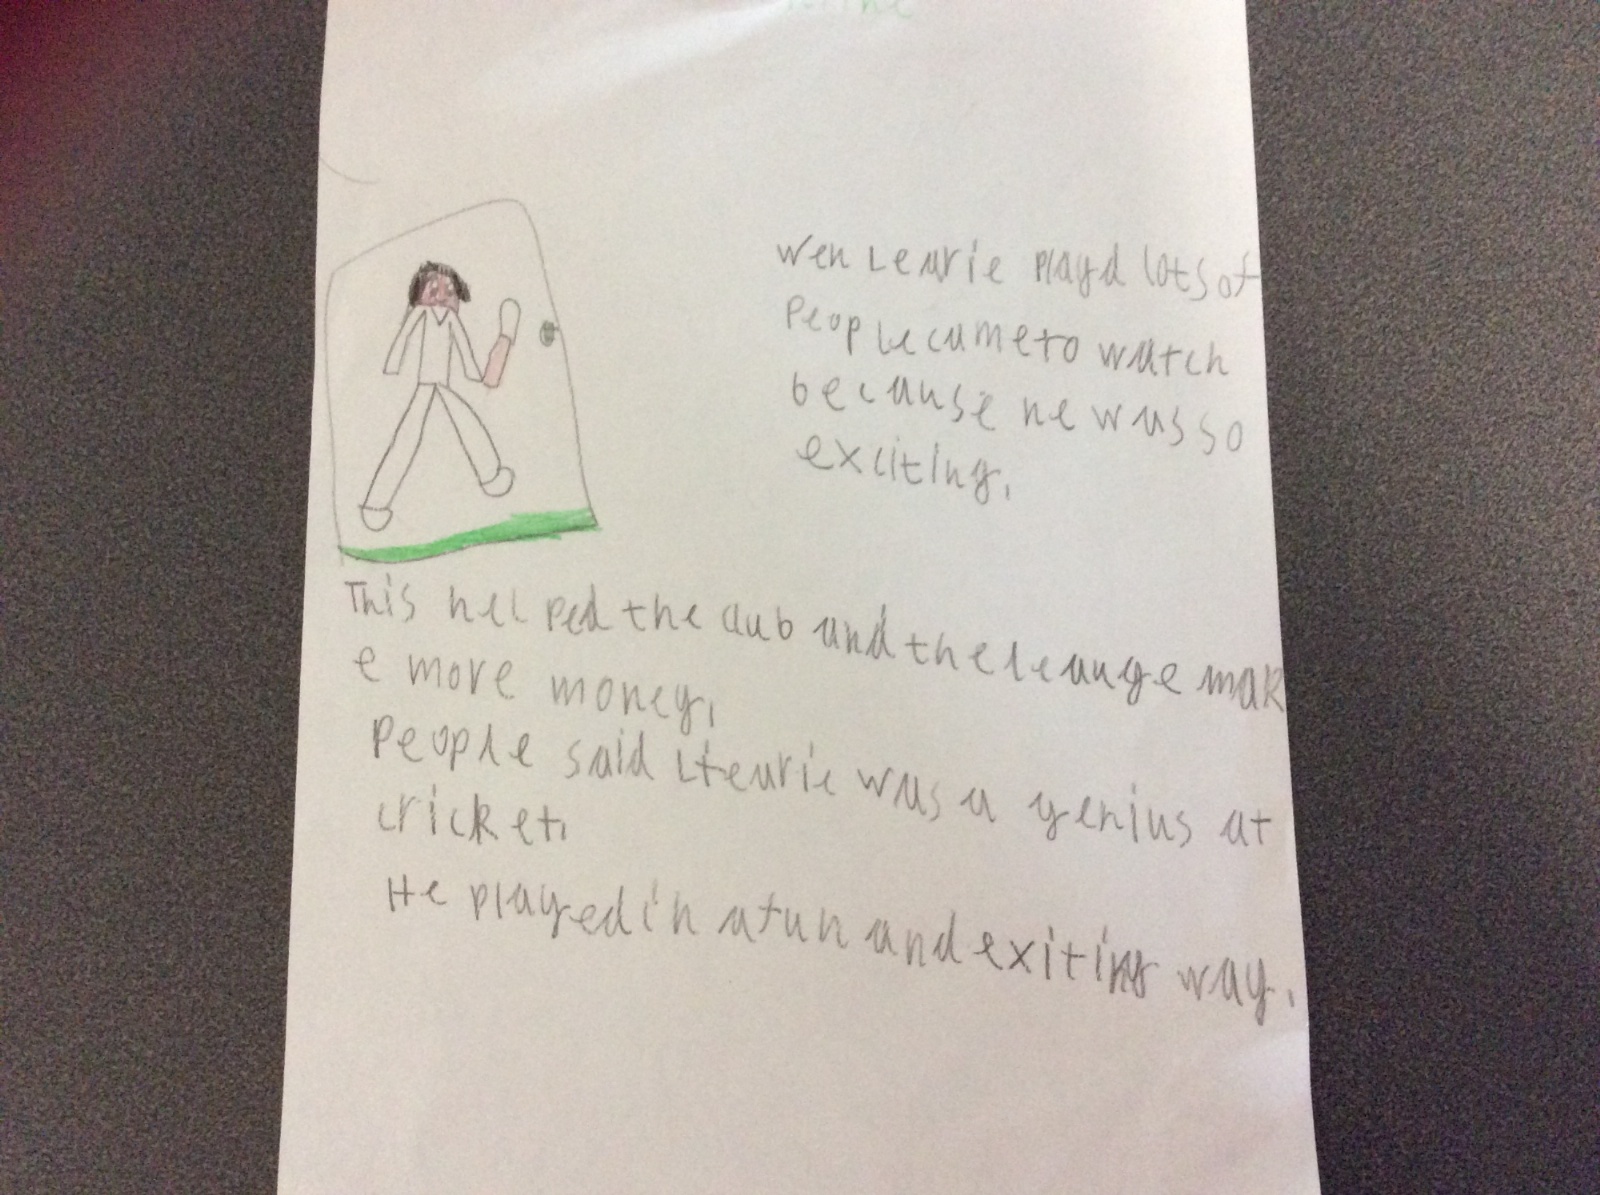 Wen Leurie playd lots of
People came to watch
because he was so
exciting.
This helped the club and the leauge mak
e more money.
People said Leurie was a genius at
cricket.
He played in a fun and exiting way.